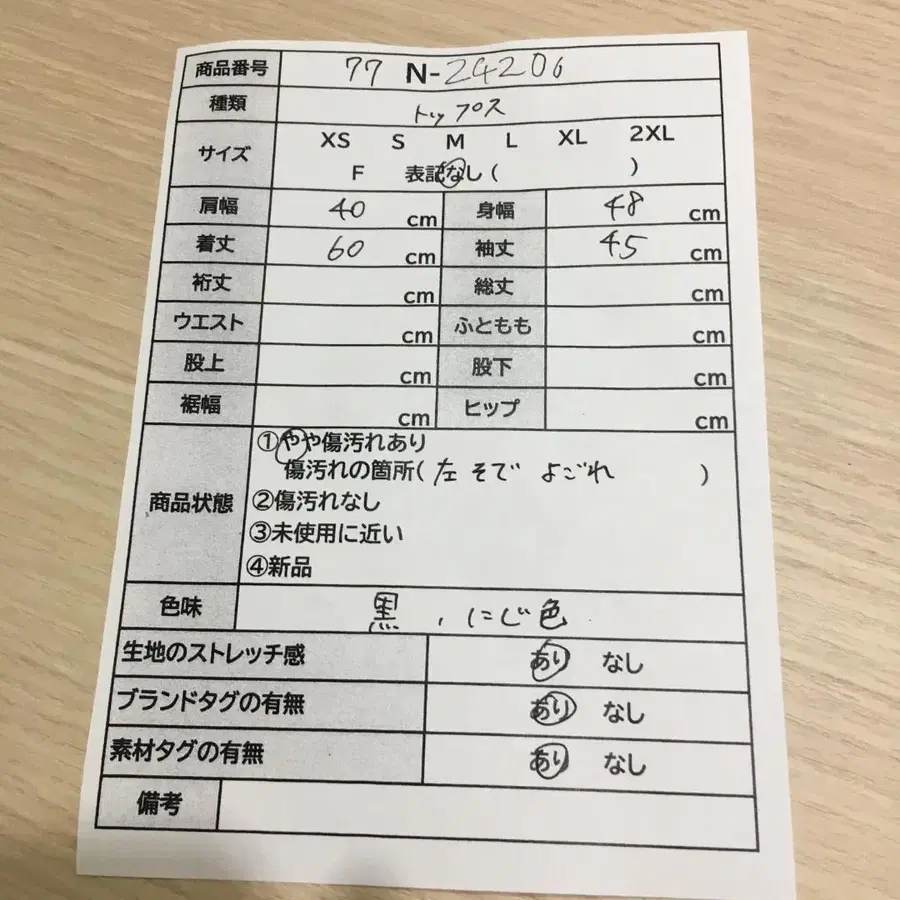 商品番号 77 N-24206
種類 トップス
サイズ XS S M L XL 2XL
F 表記なし( )
肩幅 40 cm 身幅 48 cm
着丈 60 cm 袖丈 45 cm
裄丈 cm 総丈 cm
ウエスト cm ふともも cm
股上 cm 股下 cm
裾幅 cm ヒップ cm
商品状態 ①やや傷汚れあり
傷汚れの箇所(左そで よごれ )
②傷汚れなし
③未使用に近い
④新品
色味 黒、にじ色
生地のストレッチ感 あり なし
ブランドタグの有無 あり なし
素材タグの有無 あり なし
備考